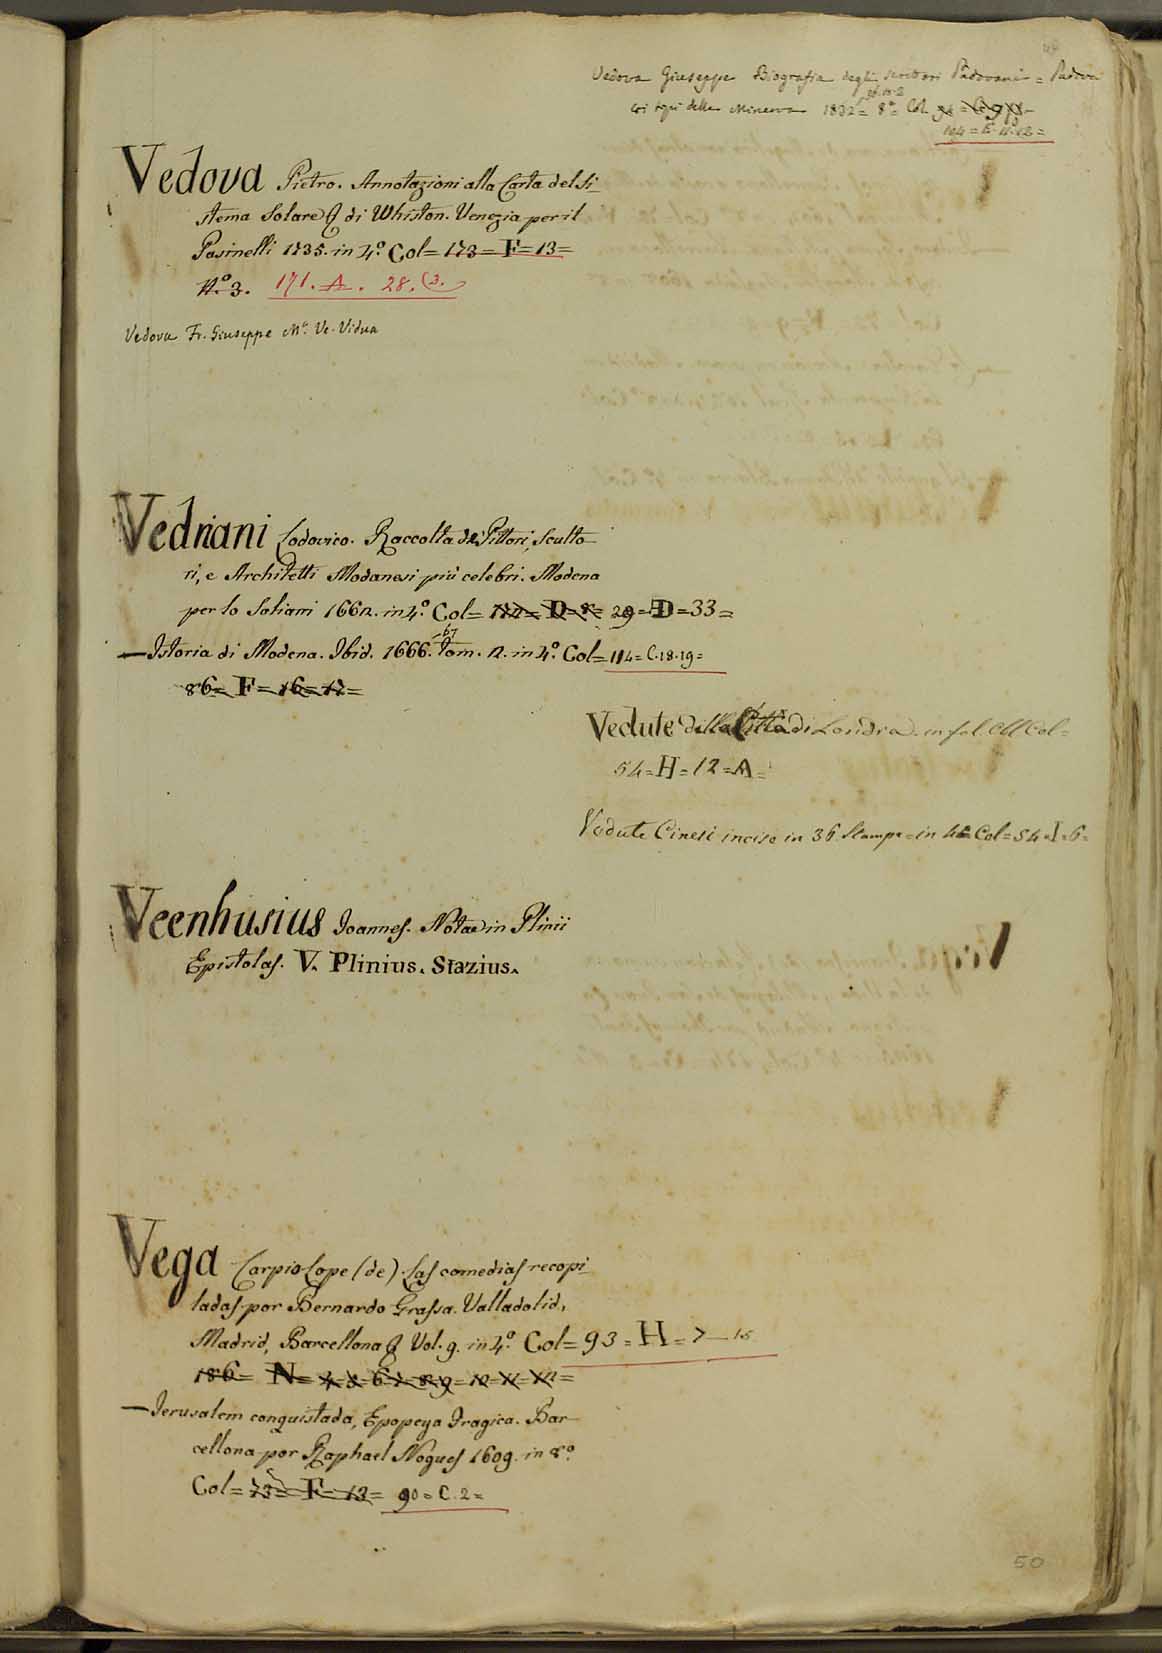 Vedova Giuseppe Biografia degli scrittori Padovani = Padova
coi tipi della Minerva 1832 = 8º = Col
194 = E. 11. 12 =
Vedova Pietro. Annotazioni alla Carta del Si-
stema Solare & di Whiston. Venezia per il
Pasinelli 1735. in 4.º Col = 173 = F = 13 =
N.º 3. 171. A. 28. (3.
Vedova Fr. Giuseppe Mª. Ve. Vidua
Vedriani Lodovico. Raccolta de Pittori, Sculto-
ri, e Architetti Modanesi più celebri. Modena
per lo Soliani 1662. in 4.º Col = 112 = D = 8 = 29 = D = 33 =
-67
— Istoria di Modena. Ibid. 1666. Tom. 2. in 4.º Col = 114 = C. 18. 19 =
86 = F = 16 = 17 =
Vedute della Città di Londra. in fol. Col =
54 = H = 12 = A =
Vedute Cinesi incise in 36 Stampe = in 4º Col = 54 = I = 6 =
Veenhusius Joannes. Notae in Plinii
Epistolas. V. Plinius. Stazius.
Vega Carpio Lope (de) Las comedias recopi-
ladas por Bernardo Grassa. Valladolid,
Madrid, Barcellona & Vol. 9. in 4.º Col = 93 = H = 7 — 15
186 = N = 4 = 5 = 6 = 7 = 8 = 9 = 10 = 11 = 12 =
— Jerusalem conquistada, Epopeya Tragica. Bar-
cellona por Raphael Nogues 1609. in 8.º
Col = 73 = F = 13 = 90 = C. 2 =
50